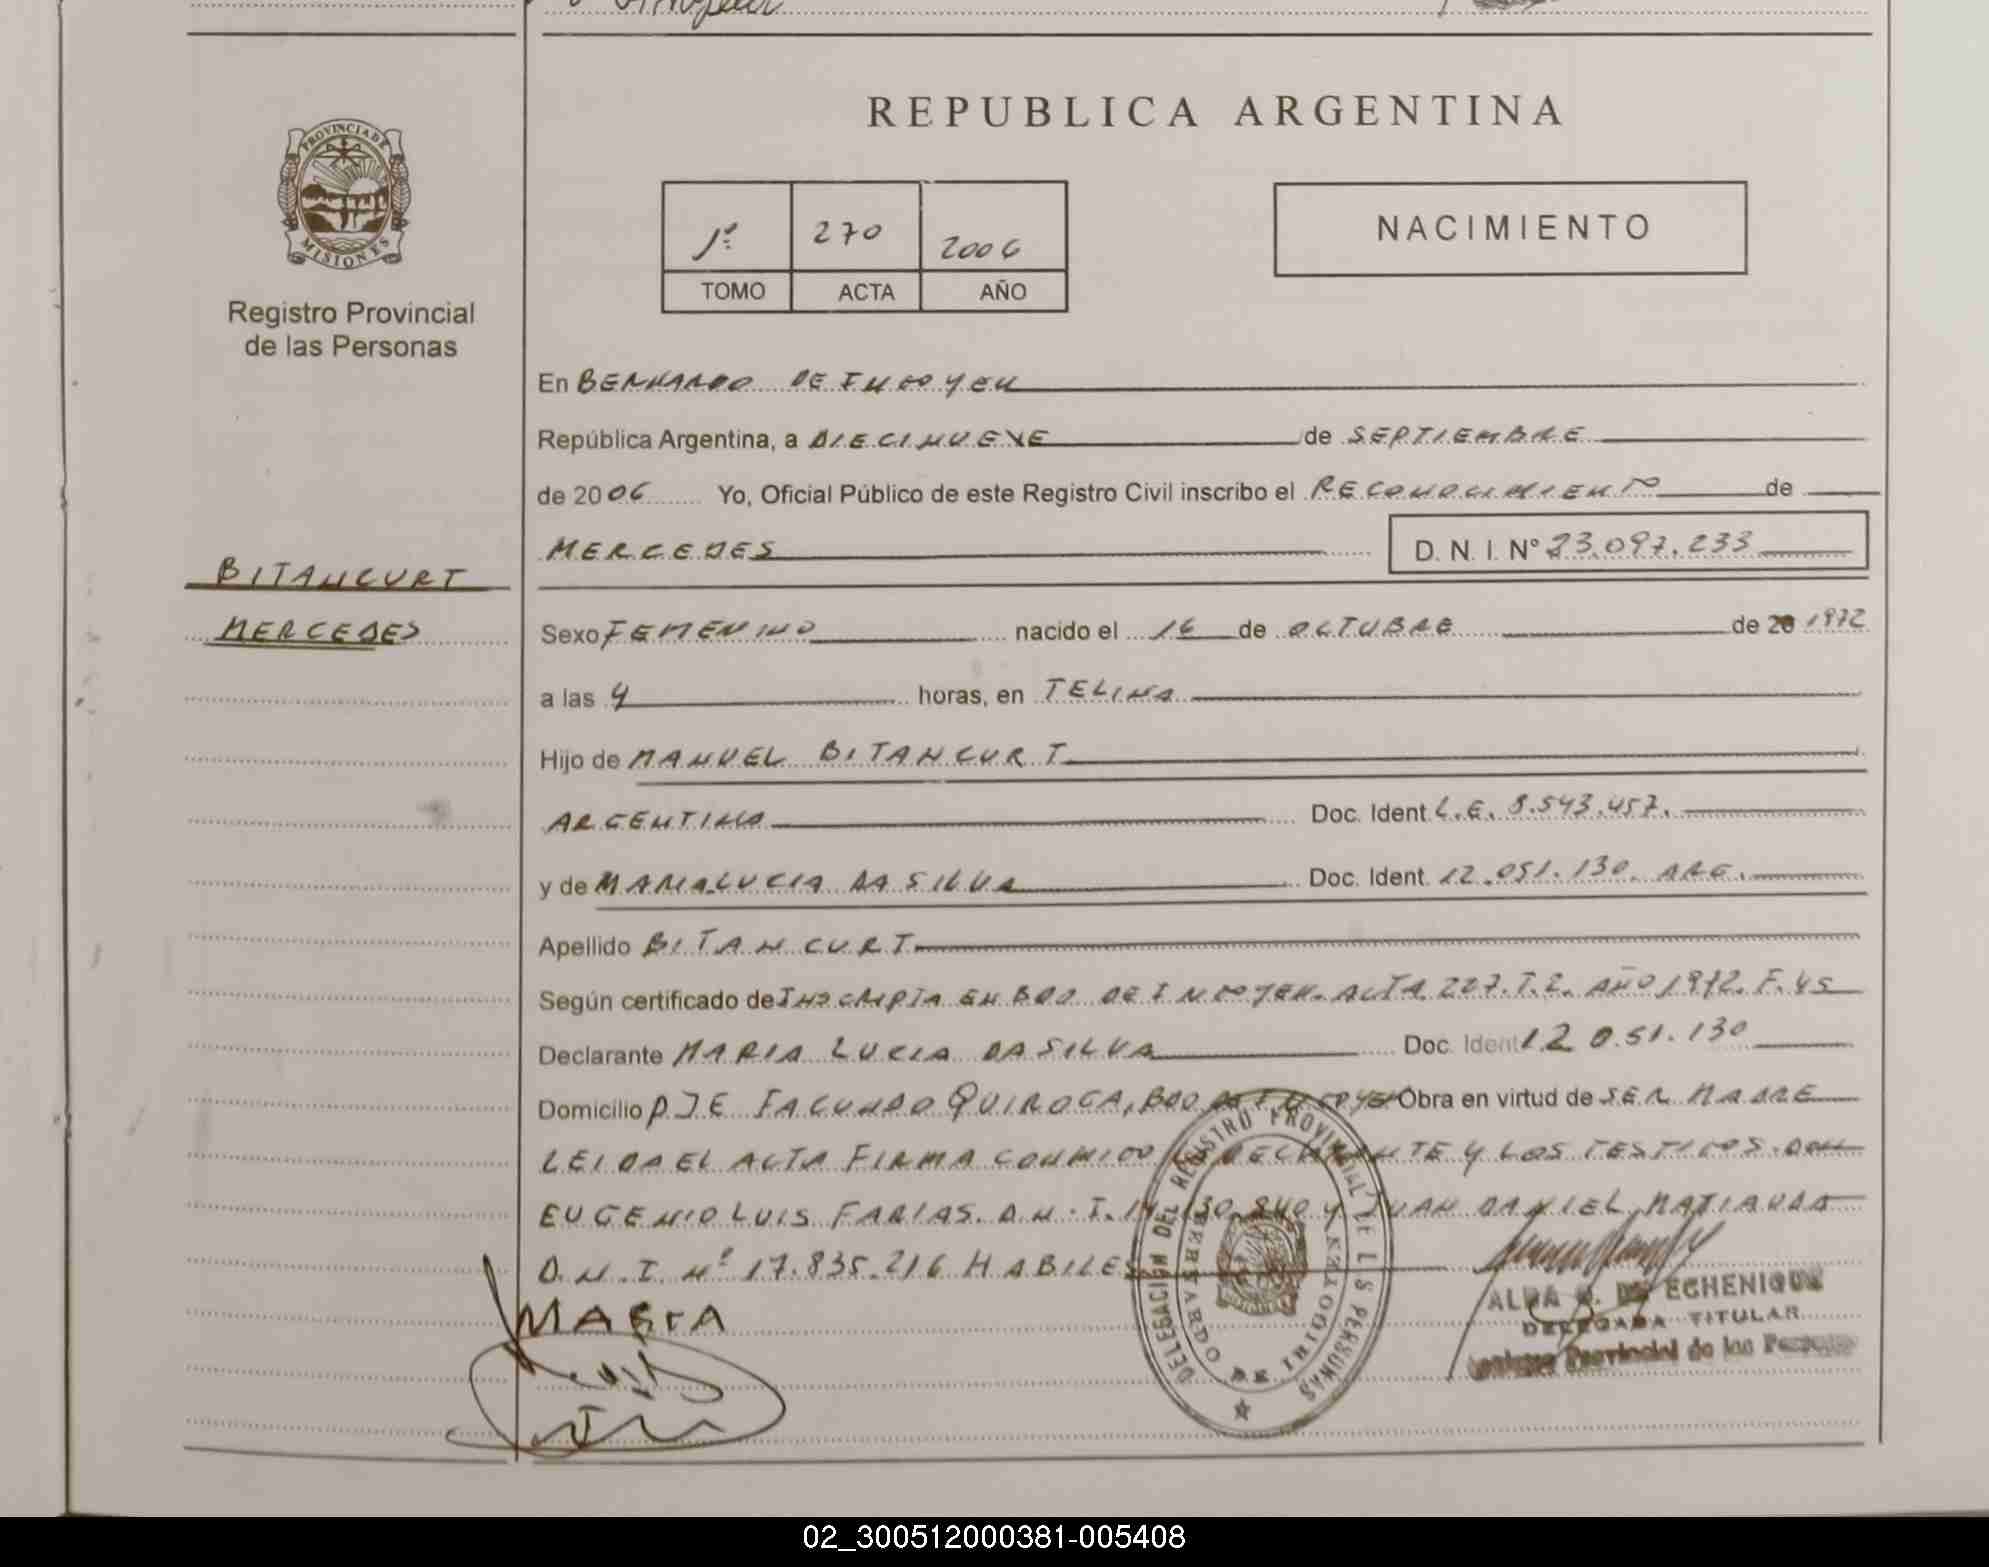 REPUBLICA ARGENTINA
PROVINCIA DE
MISIONES
Registro Provincial
de las Personas
1º 270 2006
TOMO ACTA AÑO
NACIMIENTO
En BERNARDO DE IRIGOYEN
República Argentina, a DIECINUEVE de SEPTIEMBRE
de 2006 Yo, Oficial Público de este Registro Civil inscribo el RECONOCIMIENTO de
MERCEDES D. N. I. Nº 23.097.233
BITANCURT
MERCEDES
Sexo FEMENINO nacido el 16 de OCTUBRE de 20 1972
a las 4 horas, en TELINA
Hijo de MANUEL BITANCURT
ARGENTINA Doc. Ident L.E. 8.543.457.
y de MARIA LUCIA DA SILVA Doc. Ident. 12.051.130. ARG.
Apellido BITANCURT
Según certificado de INSCRIPTA EN BDO DE IRIGOYEN. ACTA 227. T.2. AÑO 1972. F. 45
Declarante MARIA LUCIA DA SILVA Doc. Ident 12 051.130
Domicilio PJE FACUNDO QUIROGA, BDO DE IRIGOYEN Obra en virtud de SER MADRE
LEIDA EL ACTA FIRMA CONMIGO LA DECLARANTE Y LOS TESTIGOS. DON
EUGENIO LUIS FARIAS. D.N.I. 14.130.840 Y JUAN DANIEL MATIAUDA
D.N.I. Nº 17.835.216 HABILES
MARIA
DELEGACION DEL REGISTRO PROVINCIAL DE LAS PERSONAS
BERNARDO DE IRIGOYEN
ALBA DE ECHENIQUE
DELEGADA TITULAR
Registro Provincial de las Personas
02_300512000381-005408